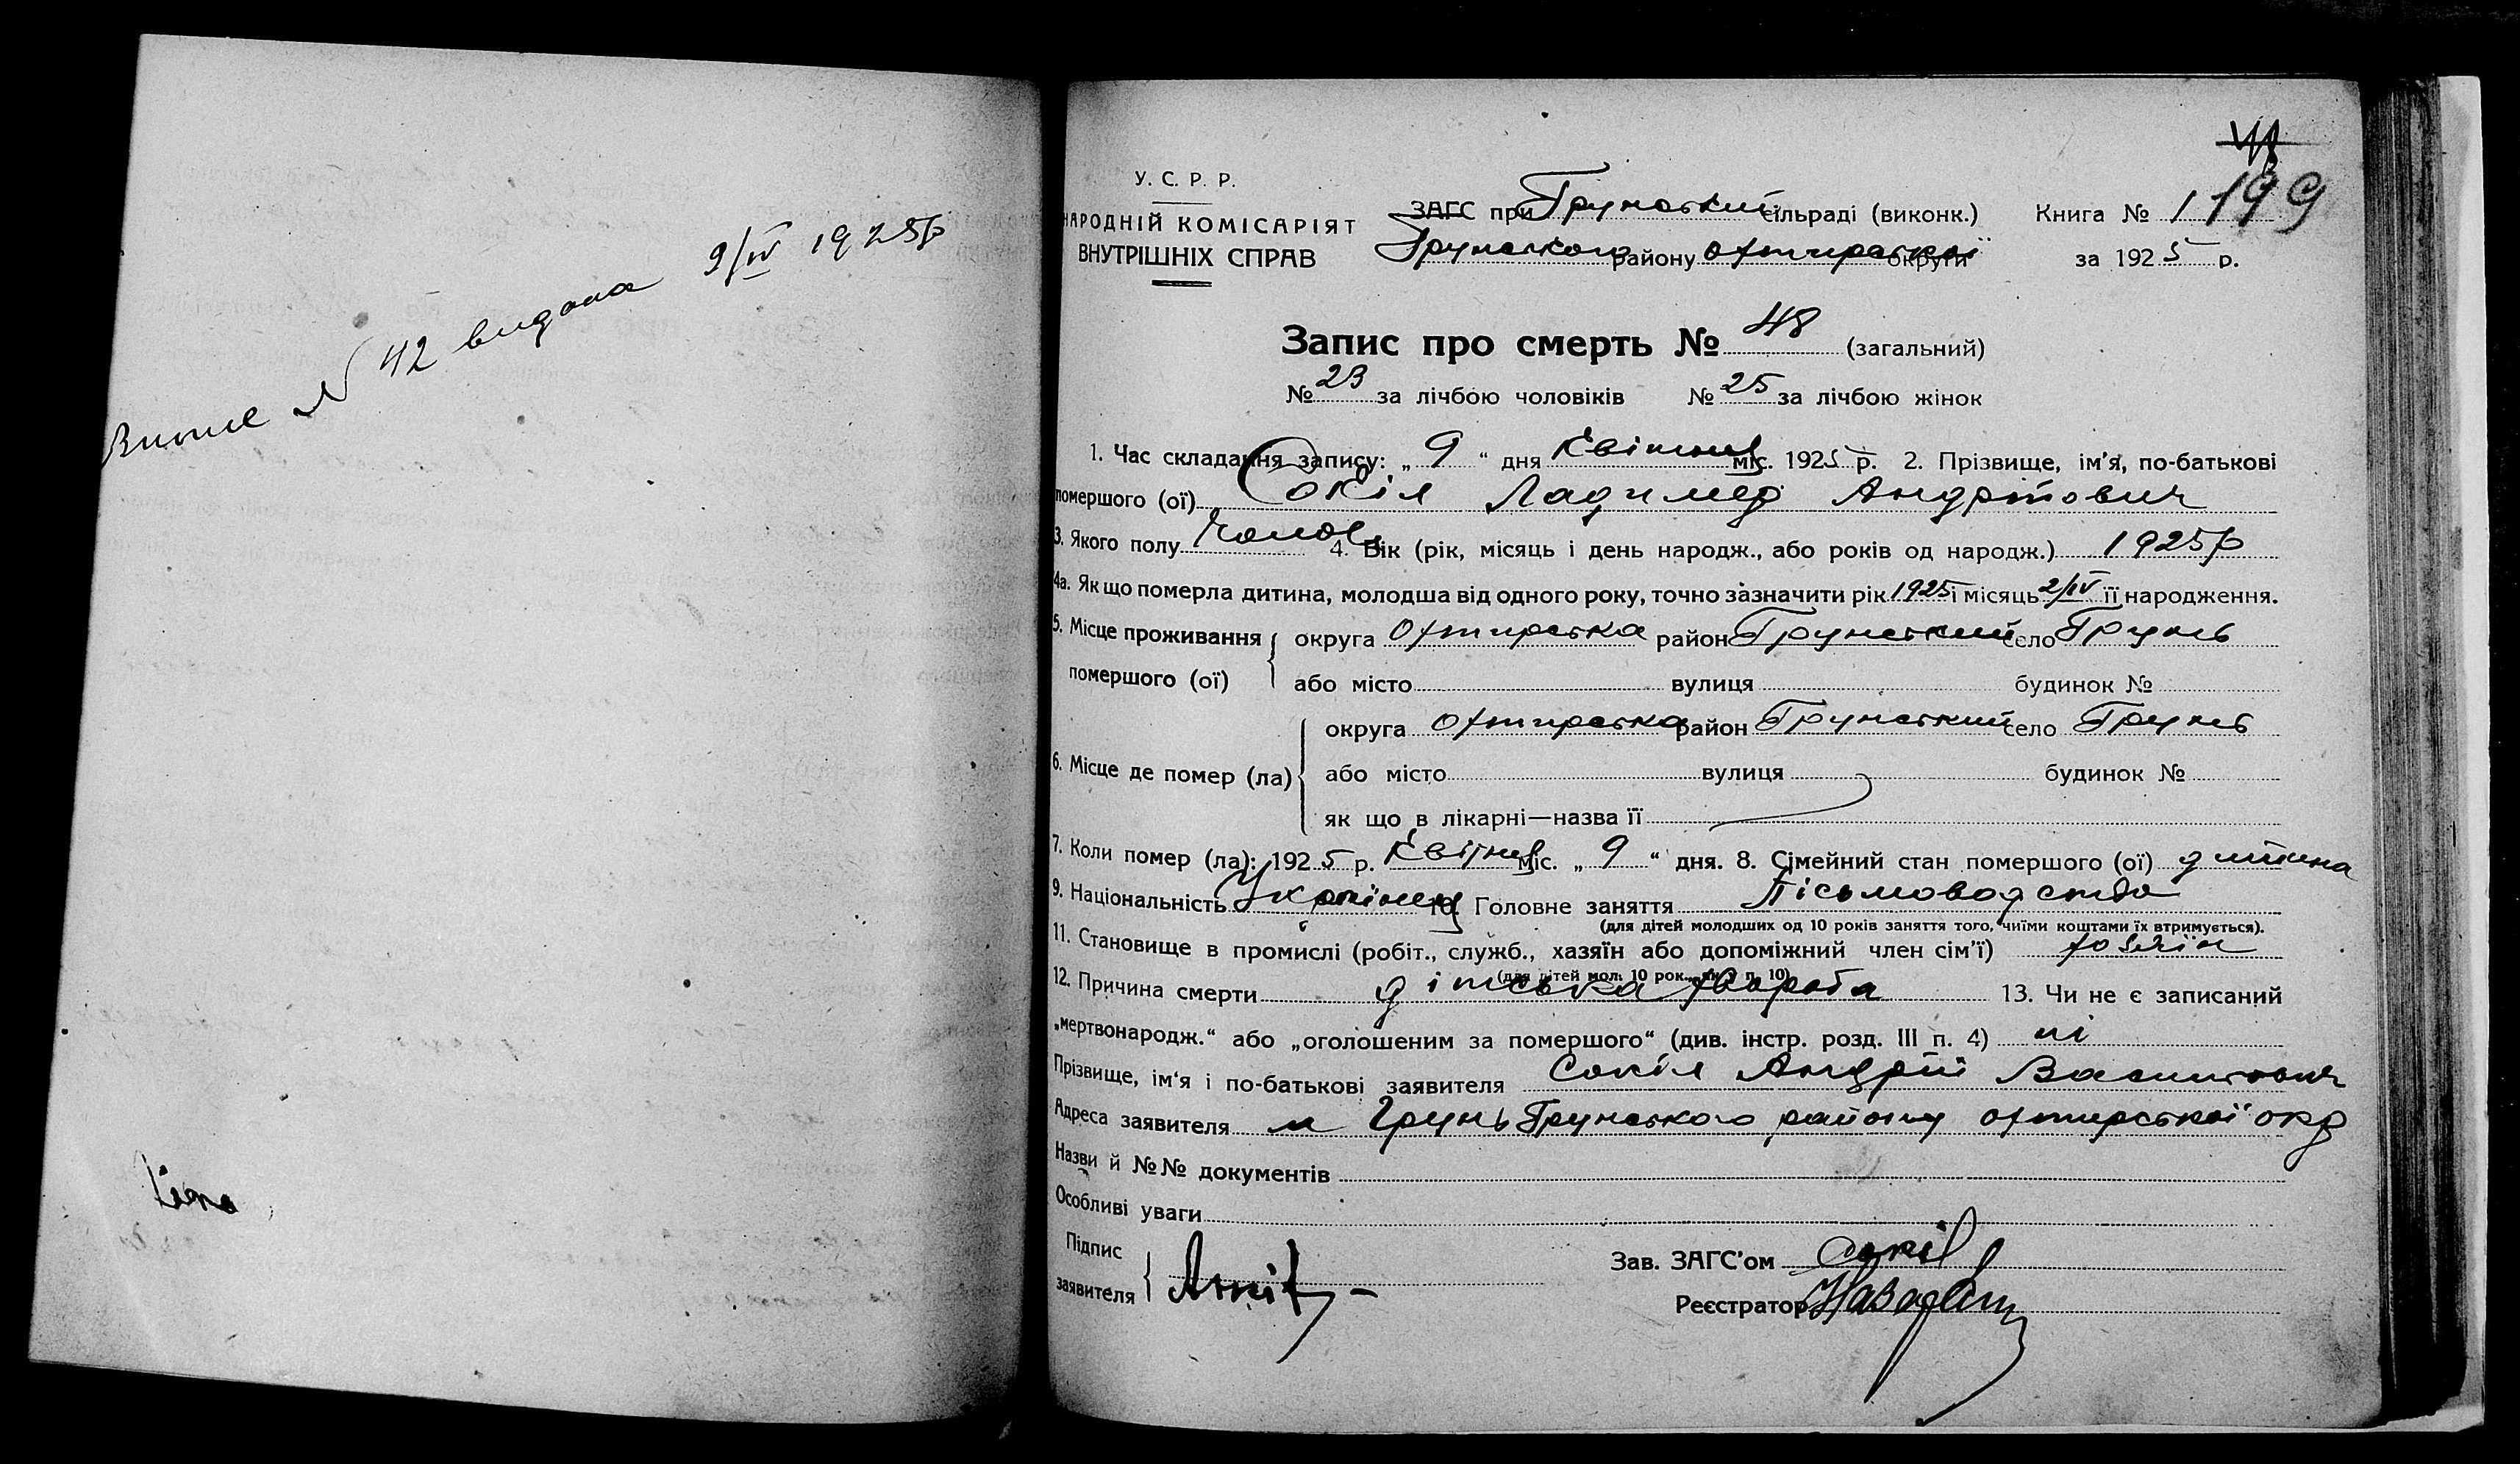 Випис N 42 видана 9/IV 1925р
У. С. Р. Р.
НАРОДНІЙ КОМІСАРІЯТ
ВНУТРІШНІХ СПРАВ
ЗАГС при Грунський сільраді (виконк.)
Грунського району Охтирської округи
Книга № 1 199
за 1925 р.
Запис про смерть № 48 (загальний)
№ 23 за лічбою чоловіків № 25 за лічбою жінок
1. Час складання запису: „ 9 “ дня Квітня міс. 1925 р. 2. Прізвище, ім'я, по-батькові
помершого (ої) Сокіл Ладимер Андрійович
3. Якого полу Чолов. 4. Вік (рік, місяць і день народж., або років од народж.) 1925р
4а. Як що померла дитина, молодша від одного року, точно зазначити рік 1925 і місяць 2/IV її народження.
5. Місце проживання округа Охтирська район Грунський село Грунь
помершого (ої) або місто вулиця будинок №
округа Охтирська район Грунський село Грунь
6. Місце де помер (ла) або місто вулиця будинок №
як що в лікарні—назва її
7. Коли помер (ла): 1925 р. Квітня міс. „ 9 “ дня. 8. Сімейний стан помершого (ої) дитина
9. Національність Украінец 10. Головне заняття Пісьмоводство
(для дітей молодших од 10 років заняття того, чиїми коштами їх втримується).
11. Становище в промислі (робіт., служб., хазяїн або допоміжний член сім'ї) хозяін
(для дітей мол. 10 рок., як у п. 10)
12. Причина смерти дітська хвороба 13. Чи не є записаний
„мертвонародж.“ або „оголошеним за помершого“ (див. інстр. розд. III п. 4) ні
Прізвище, ім'я і по-батькові заявителя Сокіл Андрій Васильович
Адреса заявителя м Грунь Грунського району охтирської окр
Назви й №№ документів
Особливі уваги
Підпис
заявителя
Зав. ЗАГС'ом
Реєстратор